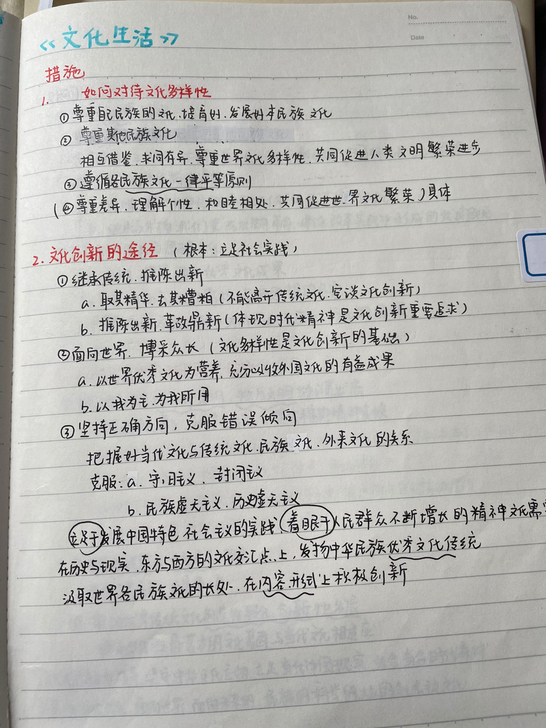 No.
Date
《文化生活》
措施
1. 如何对待文化多样性
①尊重自己民族的文化,培育好、发展好本民族文化
②尊重其他民族文化
相互借鉴,求同存异,尊重世界文化多样性,共同促进人类文明繁荣进步
③遵循各民族文化一律平等原则
(④尊重差异,理解个性,和睦相处,共同促进世界文化繁荣)具体
2. 文化创新的途径 (根本:立足社会实践)
①继承传统,推陈出新
a. 取其精华,去其糟粕(不能离于传统文化,空谈文化创新)
b. 推陈出新,革故鼎新(体现时代精神是文化创新重要追求)
②面向世界,博采众长(文化多样性是文化创新的基础)
a. 以世界优秀文化为营养,充分吸收外国文化的有益成果
b. 以我为主,为我所用
③坚持正确方向,克服错误倾向
把握好当代文化与传统文化,民族文化,外来文化的关系
克服:a. 守旧主义、封闭主义
b. 民族虚无主义,历史虚无主义
立足于发展中国特色社会主义的实践,着眼于人民群众不断增长的精神文化需
在历史与现实、东方与西方的文化交汇点上,发扬中华民族优秀文化传统
汲取世界各民族文化的长处,在内容形式上积极创新